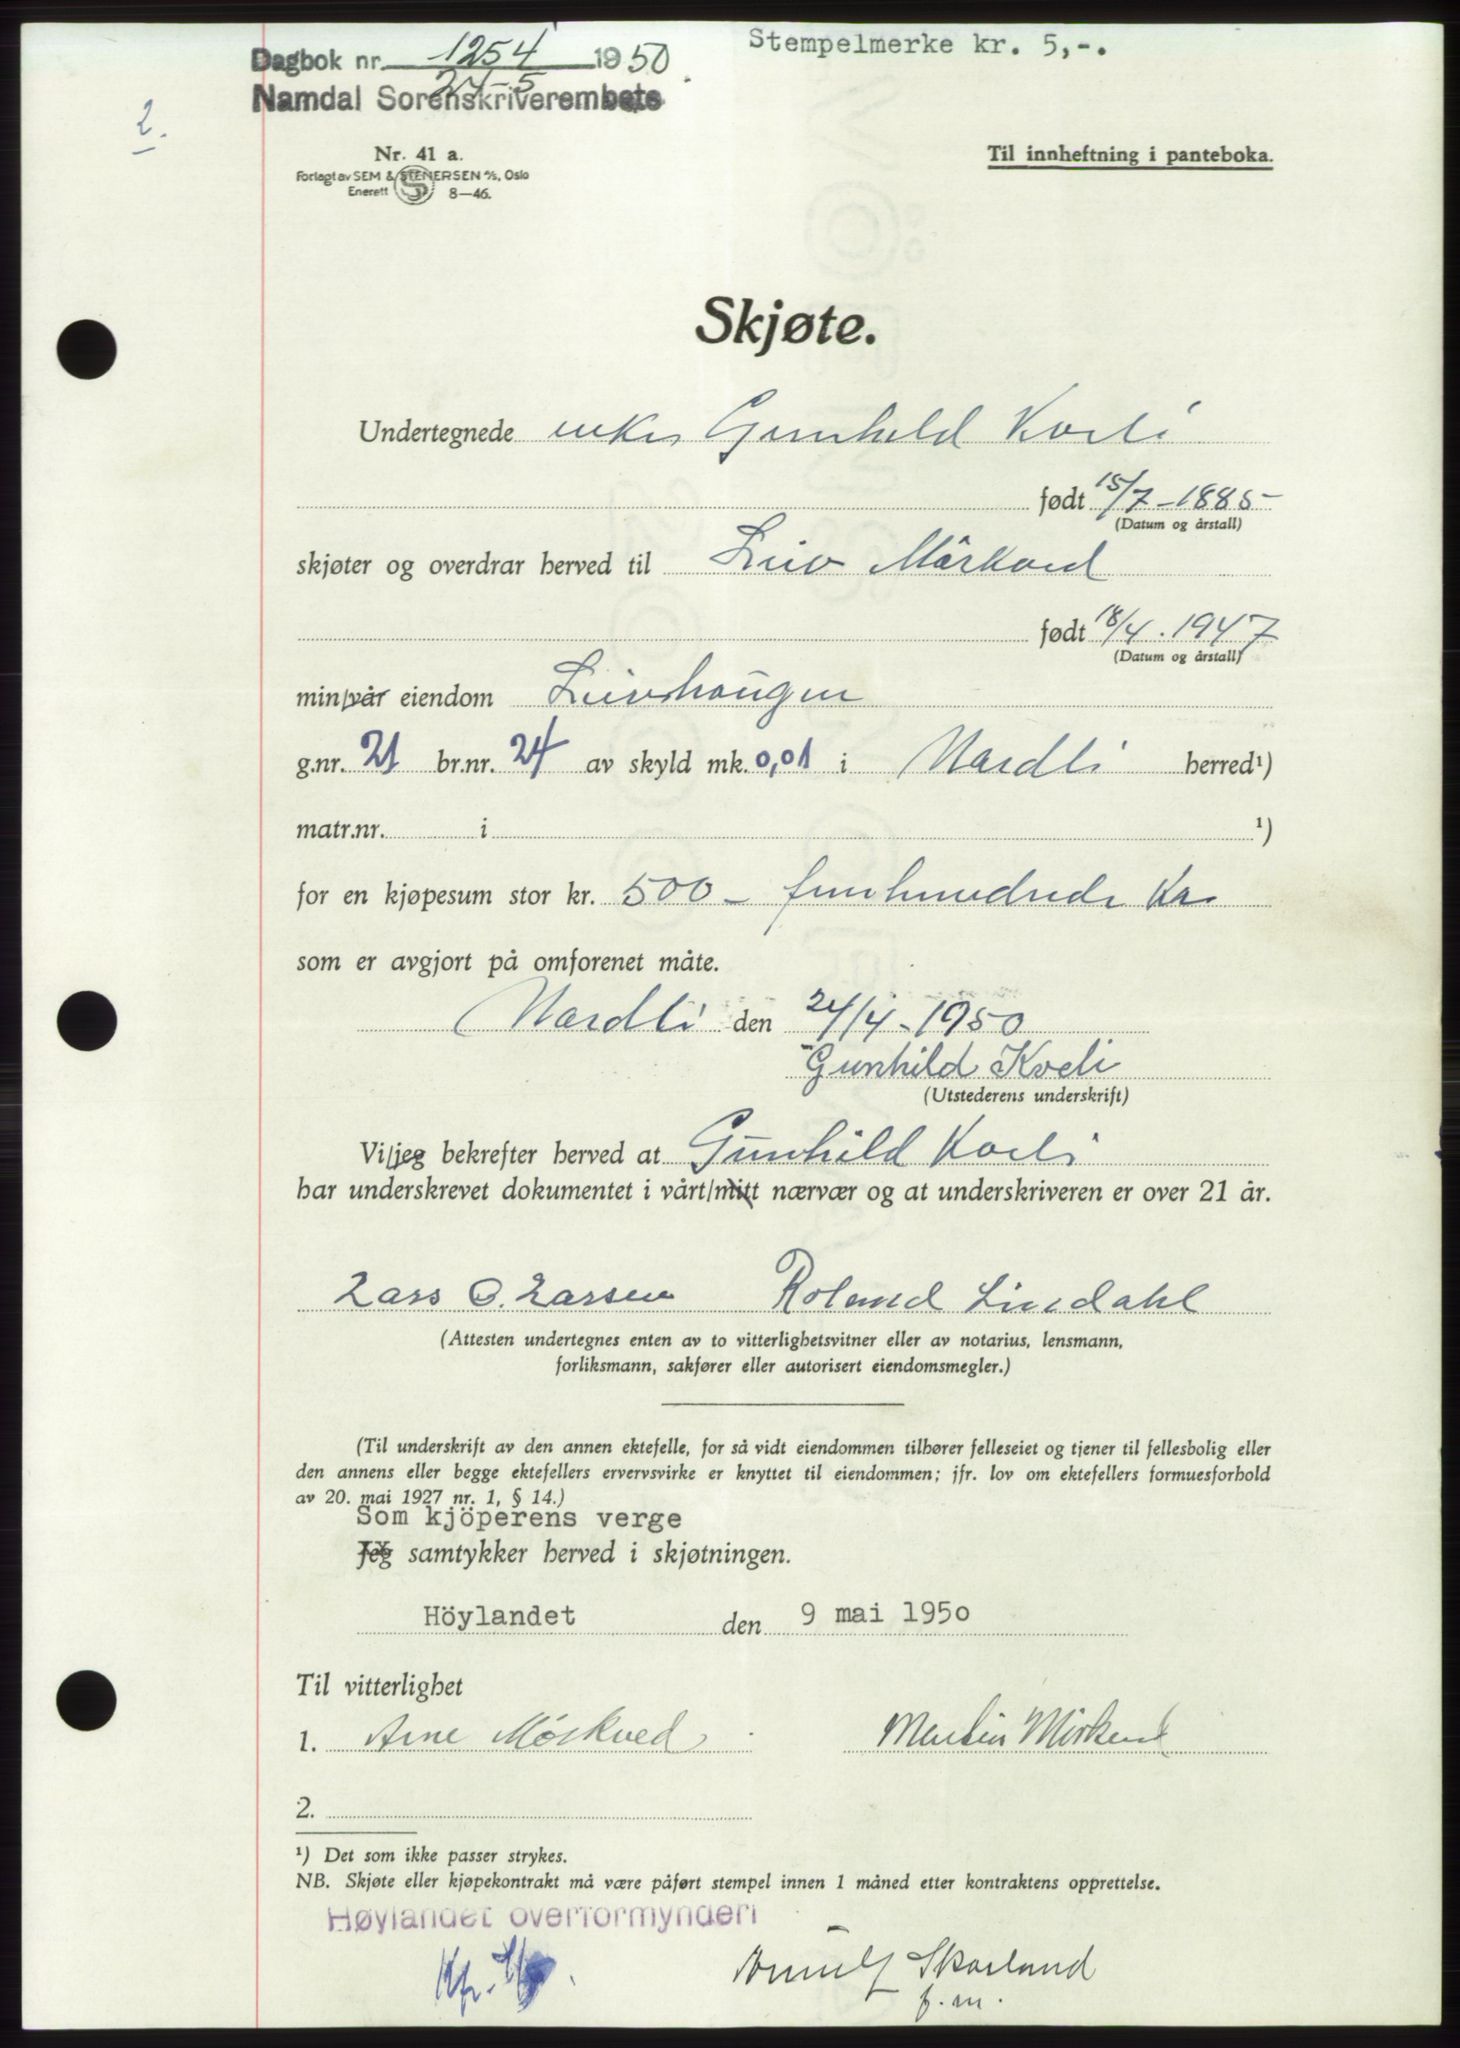 Dagbok nr. 1254 1950
24-5
Namdal Sorenskriverembete
Stempelmerke kr. 5,-.
2.
Nr. 41 a.
Forlagt av SEM & STENERSEN A/S, Oslo
Enerett 8—46.
Til innheftning i panteboka.
Skjøte.
Undertegnede enke Gunhild Kveli
født 15/7-1885-
(Datum og årstall)
skjøter og overdrar herved til Leiv Mörkved
født 18/4.1947
(Datum og årstall)
min/vår eiendom Leivhaugen
g.nr. 21 br.nr. 24 av skyld mk. 0,01 i Nordli herred¹)
matr.nr. i ¹)
for en kjøpesum stor kr. 500 - femhundrede kr
som er avgjort på omforenet måte.
Nordli den 24/4-1950
Gunhild Kveli
(Utstederens underskrift)
Vi/jeg bekrefter herved at Gunhild Kveli
har underskrevet dokumentet i vårt/mitt nærvær og at underskriveren er over 21 år.
Lars O. Larsen Roland Lindahl
(Attesten undertegnes enten av to vitterlighetsvitner eller av notarius, lensmann,
forliksmann, sakfører eller autorisert eiendomsmegler.)
(Til underskrift av den annen ektefelle, for så vidt eiendommen tilhører felleseiet og tjener til fellesbolig eller
den annens eller begge ektefellers ervervsvirke er knyttet til eiendommen; jfr. lov om ektefellers formuesforhold
av 20. mai 1927 nr. 1, § 14.)
Som kjöperens verge
Jeg samtykker herved i skjøtningen.
Höylandet den 9 mai 1950
Til vitterlighet
1. Arne Mörkved Martin Mörkved
2.
¹) Det som ikke passer strykes.
NB. Skjøte eller kjøpekontrakt må være påført stempel innen 1 måned etter kontraktens opprettelse.
Høylandet overformynderi
Kfr.
Arnulf Skarland
f.m.